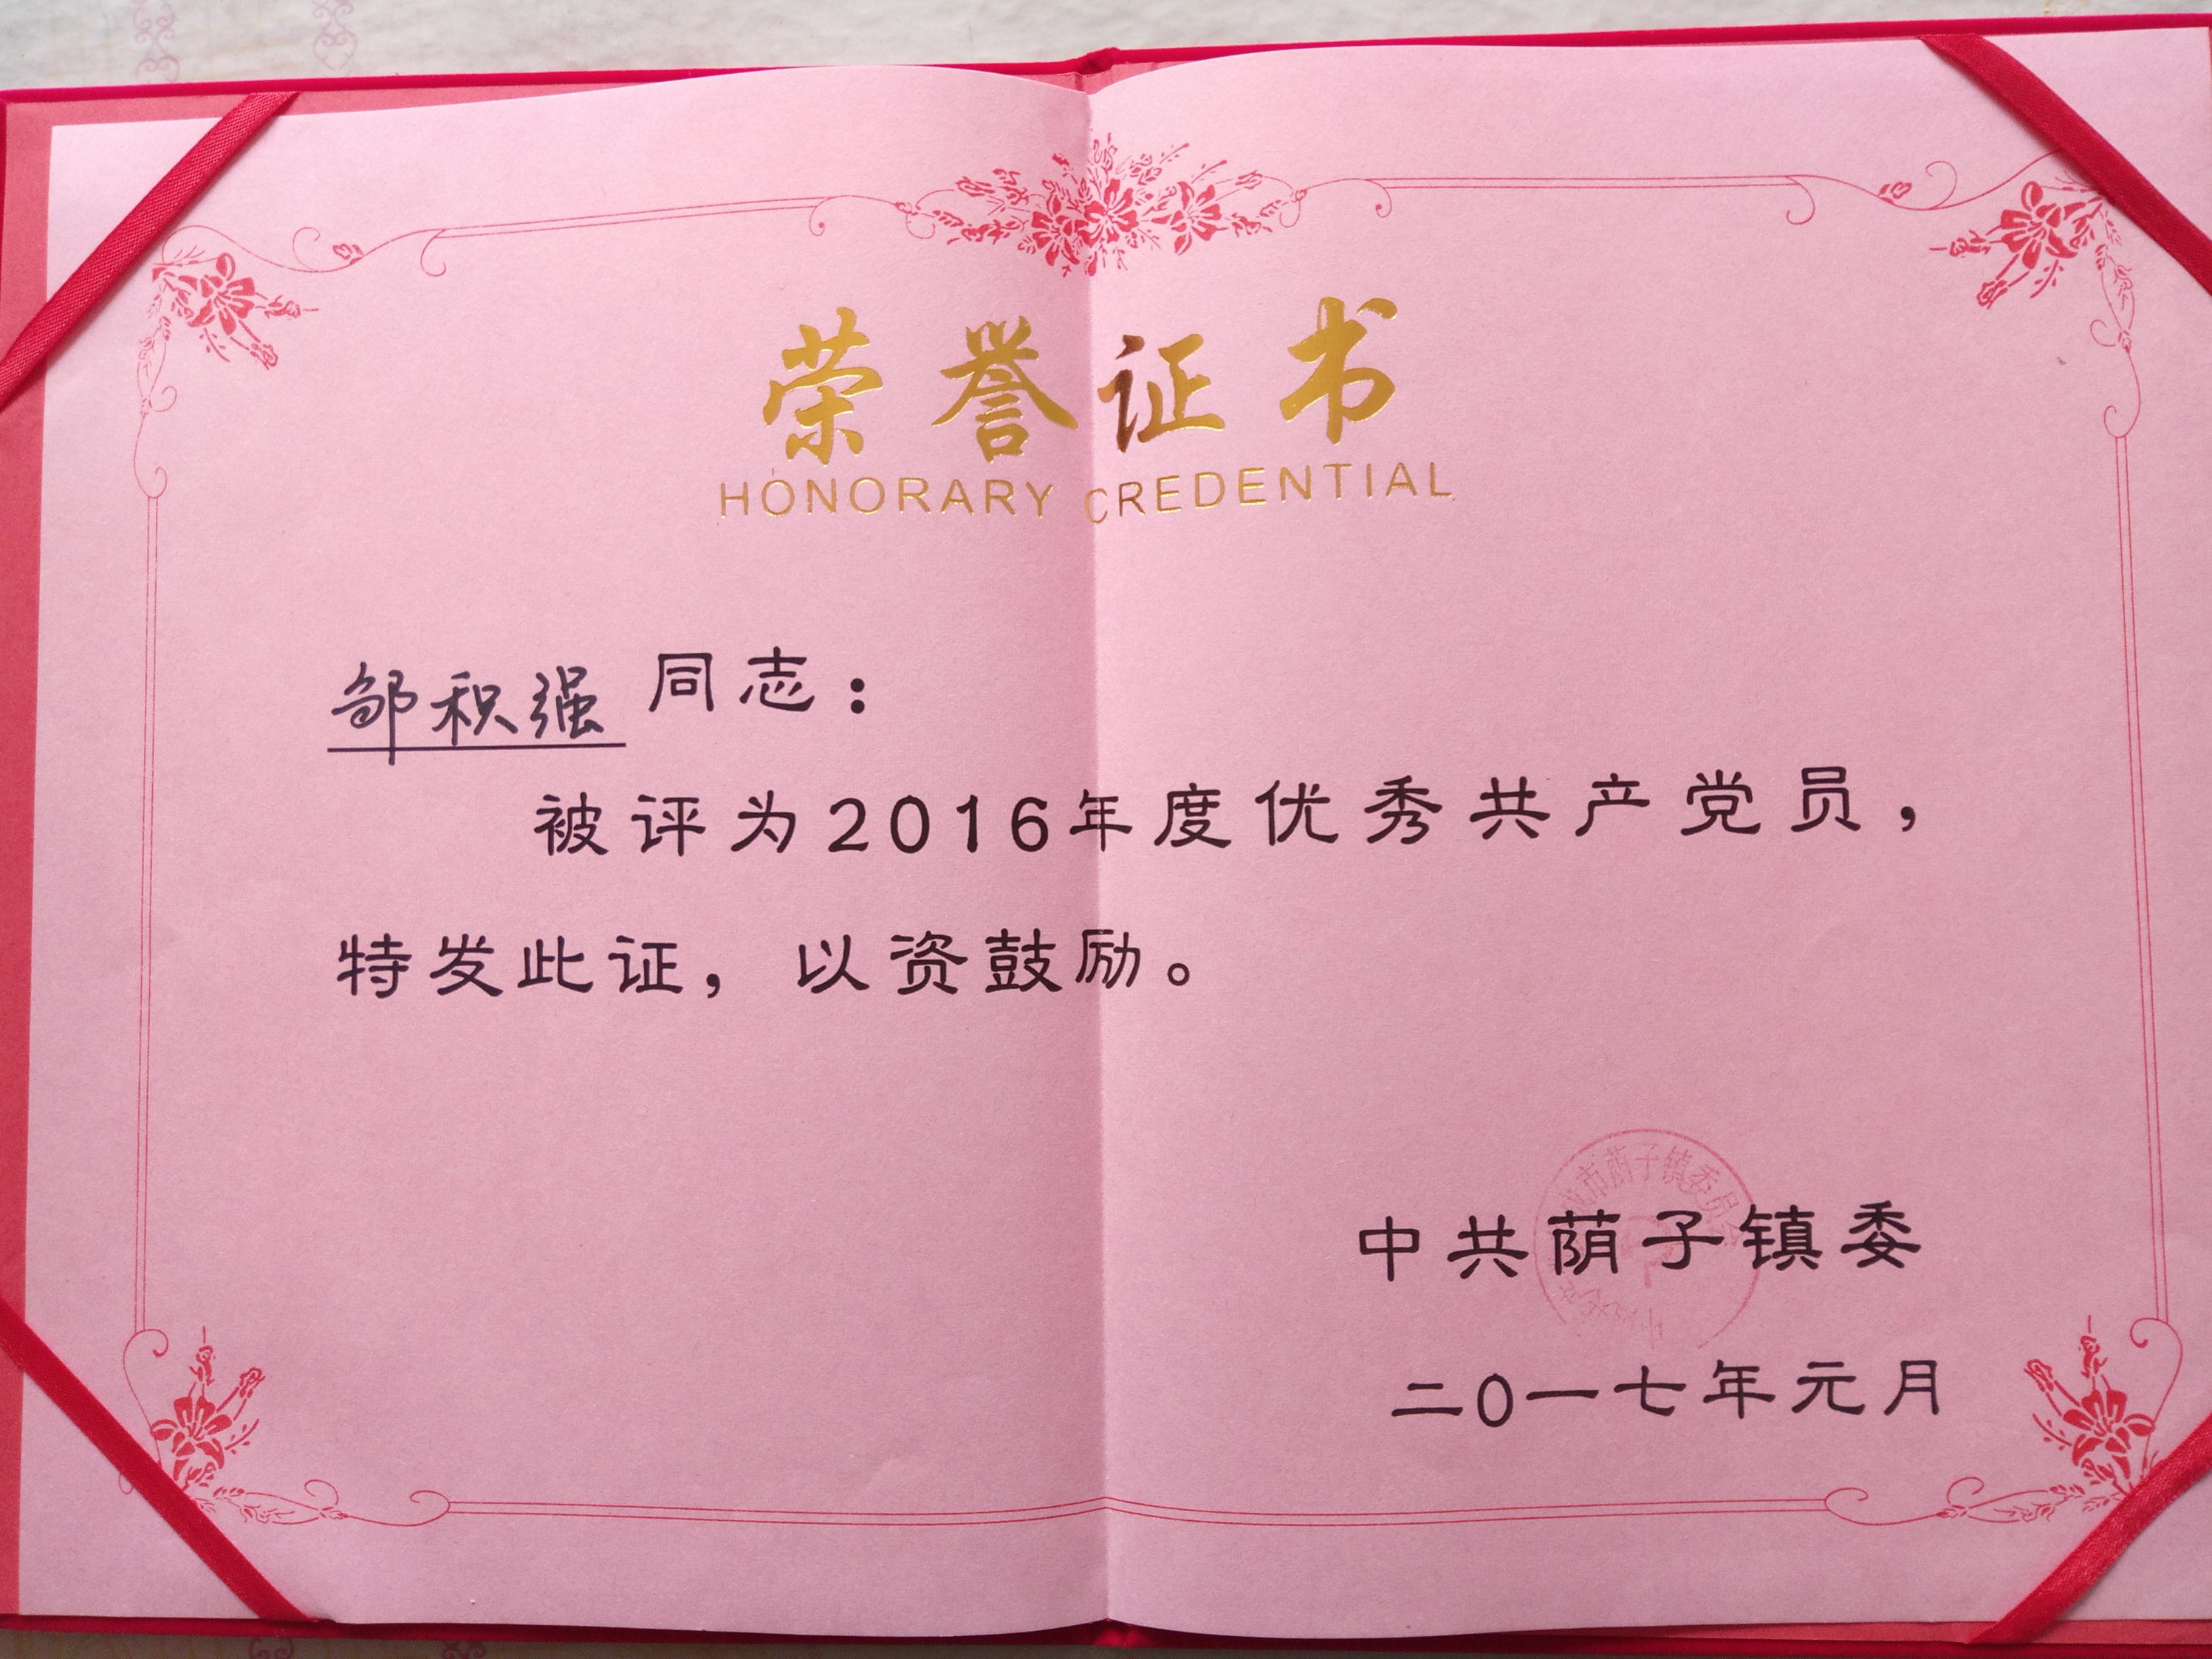 荣誉证书
HONORARY CREDENTIAL
邹积强同志：
被评为2016年度优秀共产党员，
特发此证，以资鼓励。
市荫子镇委员
中共荫子镇委
二0一七年元月